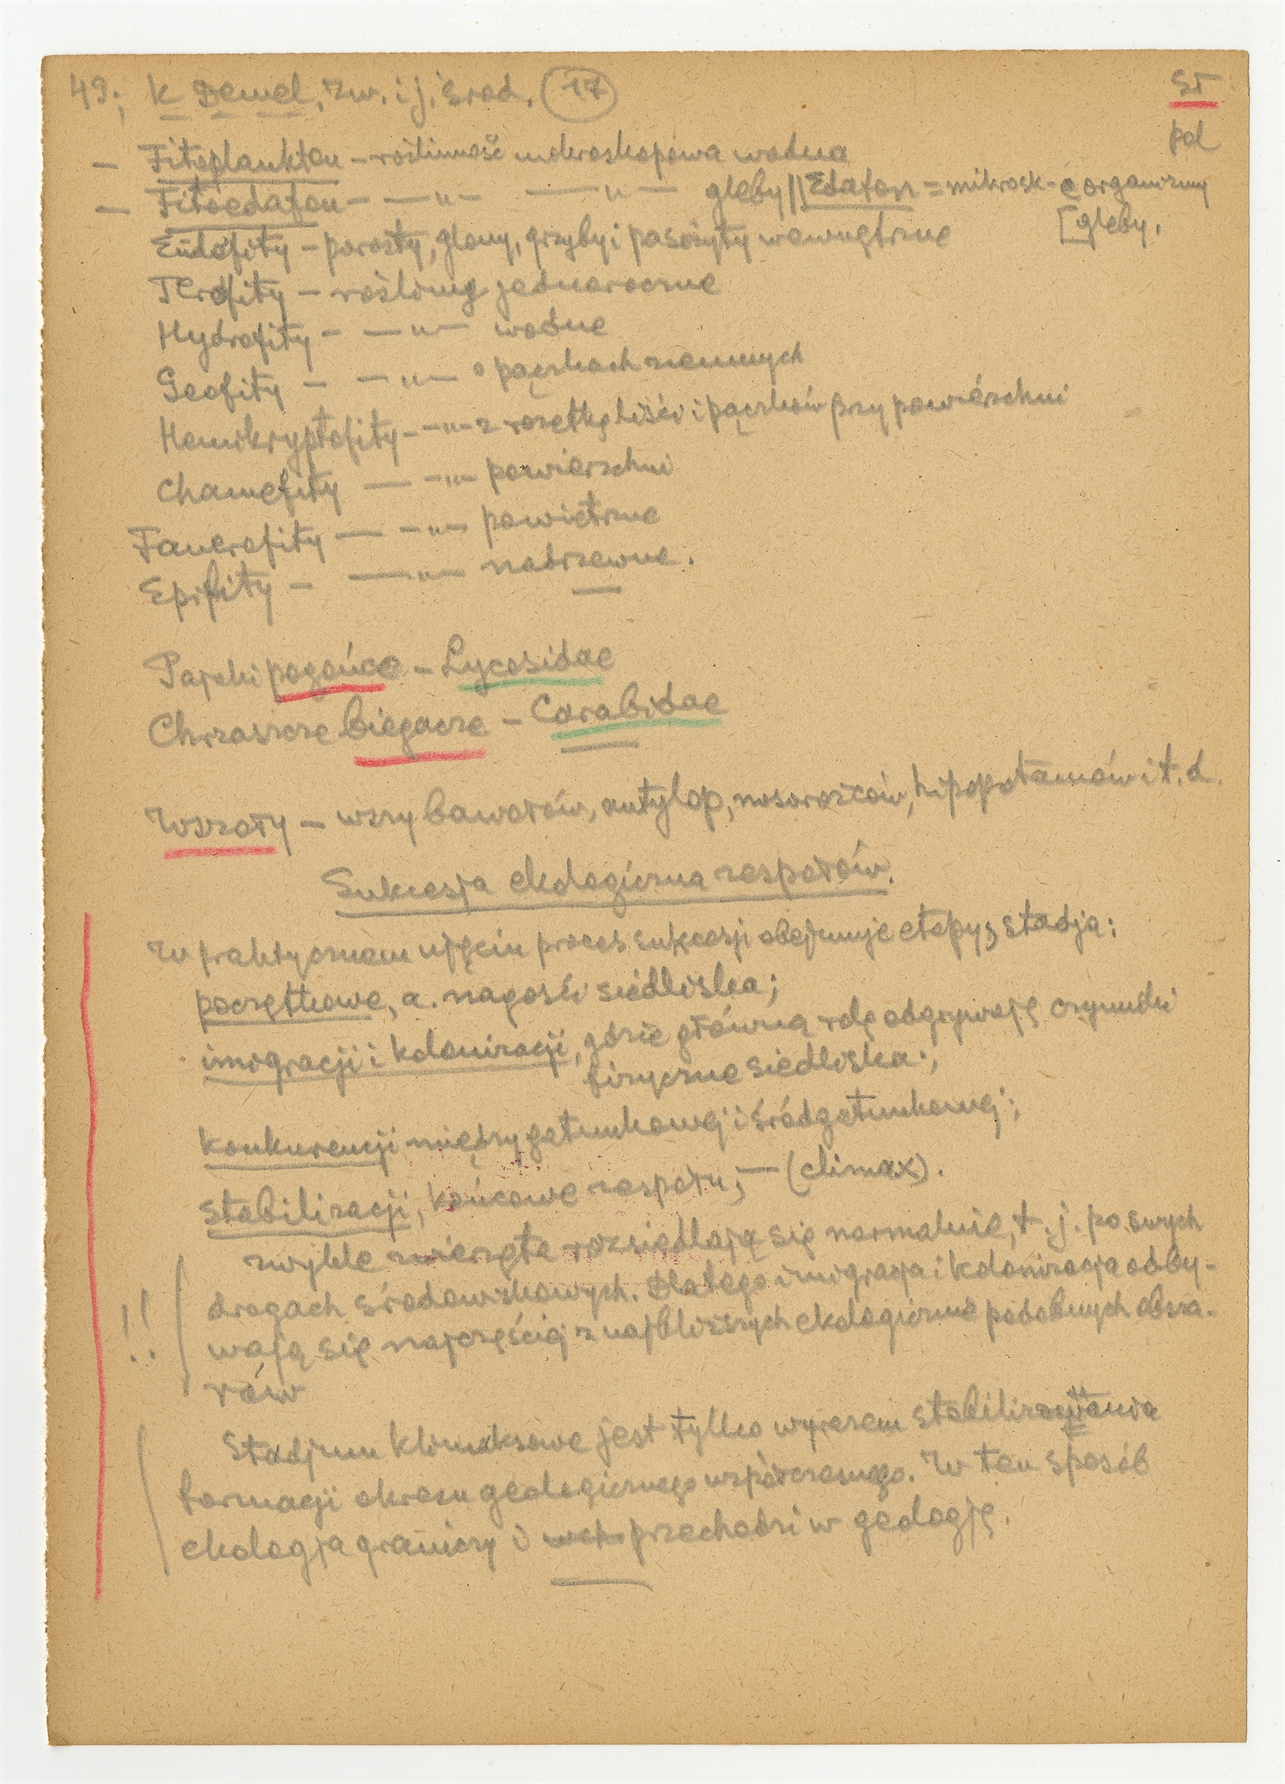 49; K Demel, Zw. i j. środ. 17
SŁ
pol
— Fitoplankton – roślinność mikroskopowa wodna
— Fitoedafon – — „ – — „ — gleby || Edafon = mikrosk-e organizmy
[gleby.
Endofity – porosty, glony, grzyby i pasożyty wewnętrzne
Terofity – rośliny jednoroczne
Hydrofity – — „ — wodne
Geofity – – „ — o pączkach ziemnych
Hemikryptofity – – „ – z rozetką liści i pączków przy powierzchni
Chamefity — – „ – powierzchni
Fanerofity — – „ – powietrzne
Epifity – — „ — nadrzewne.
Pająki pogońce – Lycosidae
Chrząszcze biegacze – Carabidae
Wszoły – wszy bawołów, antylop, nosorożców, hipopotamów i t. d.
Sukcesja ekologiczna zespołów.
W praktycznem ujęciu proces sukcesji obejmuje etapy, stadja:
początkowe, a. nagości siedliska;
imigracji i kolonizacji, gdzie główną rolę odgrywają czynniki
fizyczne siedliska;
konkurencji międzygatunkowej i śródgatunkowej;
stabilizacji, końcowe zespołu, — (climax).
zwykle zwierzęta rozsiedlają się normalnie, t. j. po swych
!! drogach środowiskowych. Dlatego imigracja i kolonizacja odby-
wają się najczęściej z najbliższych ekologicznie podobnych obsza-
rów
Stadjum klimaksowe jest tylko wyrazem stabilizowania
formacji okresu geologicznego współczesnego. W ten sposób
ekologja graniczy i przechodzi w geologję.